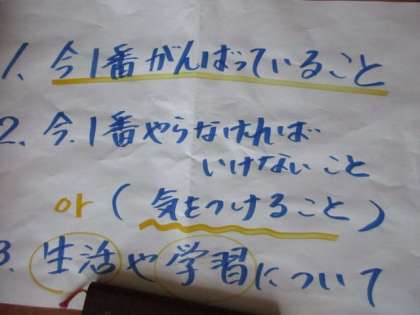 1. 今1番がんばっていること
2. 今.1番やらなければ
いけないこと
or (気をつけること)
3. 生活や学習について